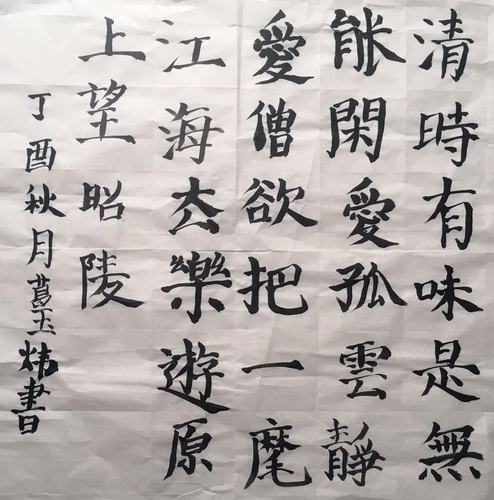 清時有味是無
能閑愛孤雲靜
愛僧欲把一麾
江海去樂遊原
上望昭陵
丁酉秋月葛玉炜書